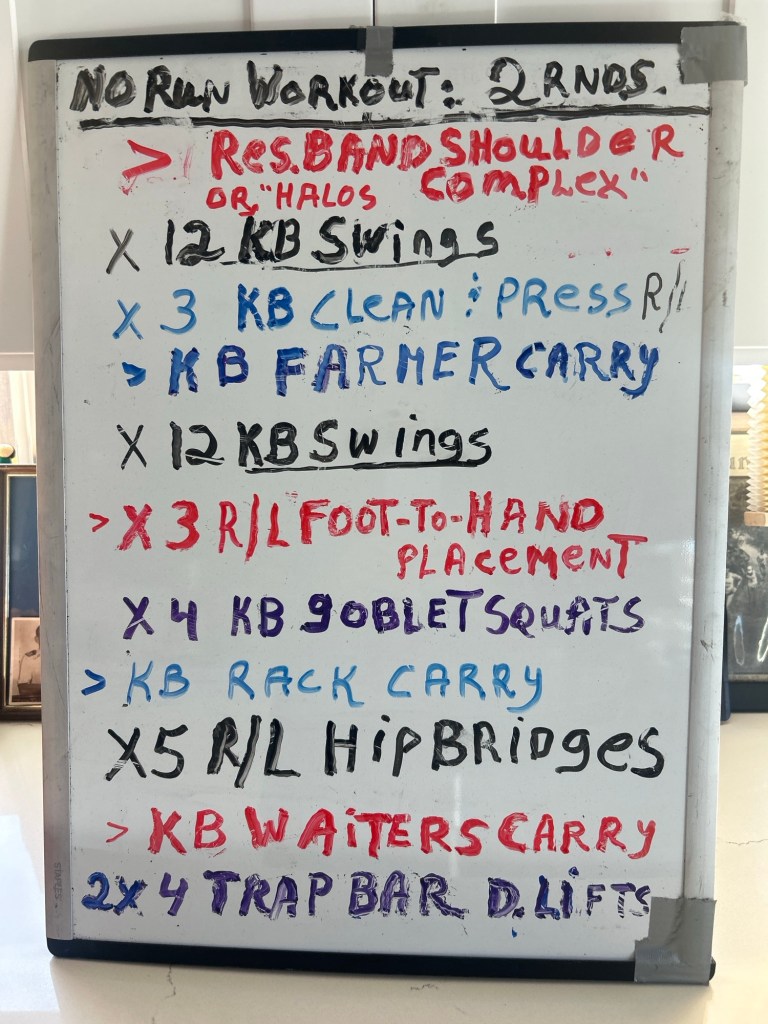 NO RUN WORKOUT: 2 RNDS.
> Res. BAND SHOULDeR
OR "HALOS COMPLEX"
X 12 KB SWings
X 3 KB CLeAN & PRess R/L
> KB FARMER CARRY
X 12 KB SWings
> X 3 R/L FOOT-TO-HAND
PLACEMeNT
X 4 KB gOBLET SQUATS
> KB RACK CARRY
X5 R/L HipBRiDges
> KB WAiTERS CARRY
2X 4 TRAP BAR D. LiFTS
STAPLES